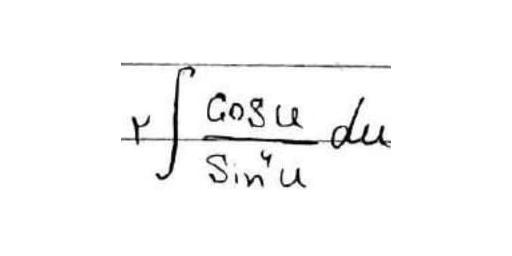 r∫ cosu / sin⁴u du